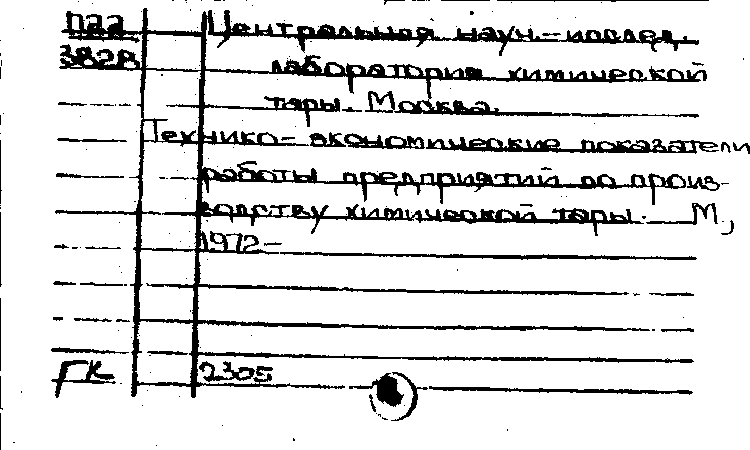 П22 Центральная научн.-исслед.
3828 лаборатория химической
тары. Москва.
Технико-экономические показатели
работы предприятий по произ-
водству химической тары. М.,
1972-
ГК 2305